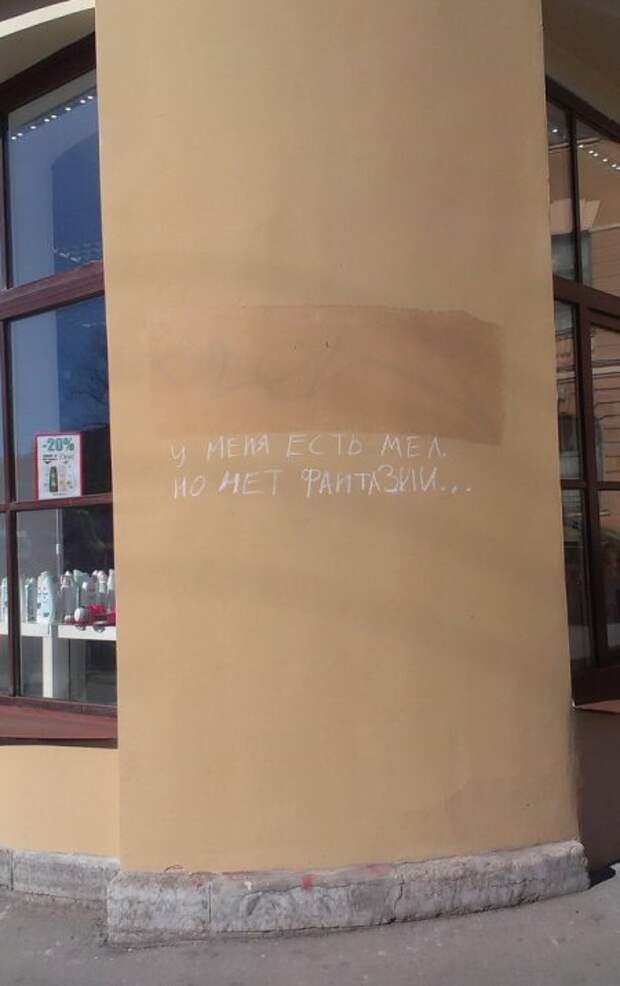 У МЕНЯ ЕСТЬ МЕЛ.
НО НЕТ ФАНТАЗИИ...
-20%